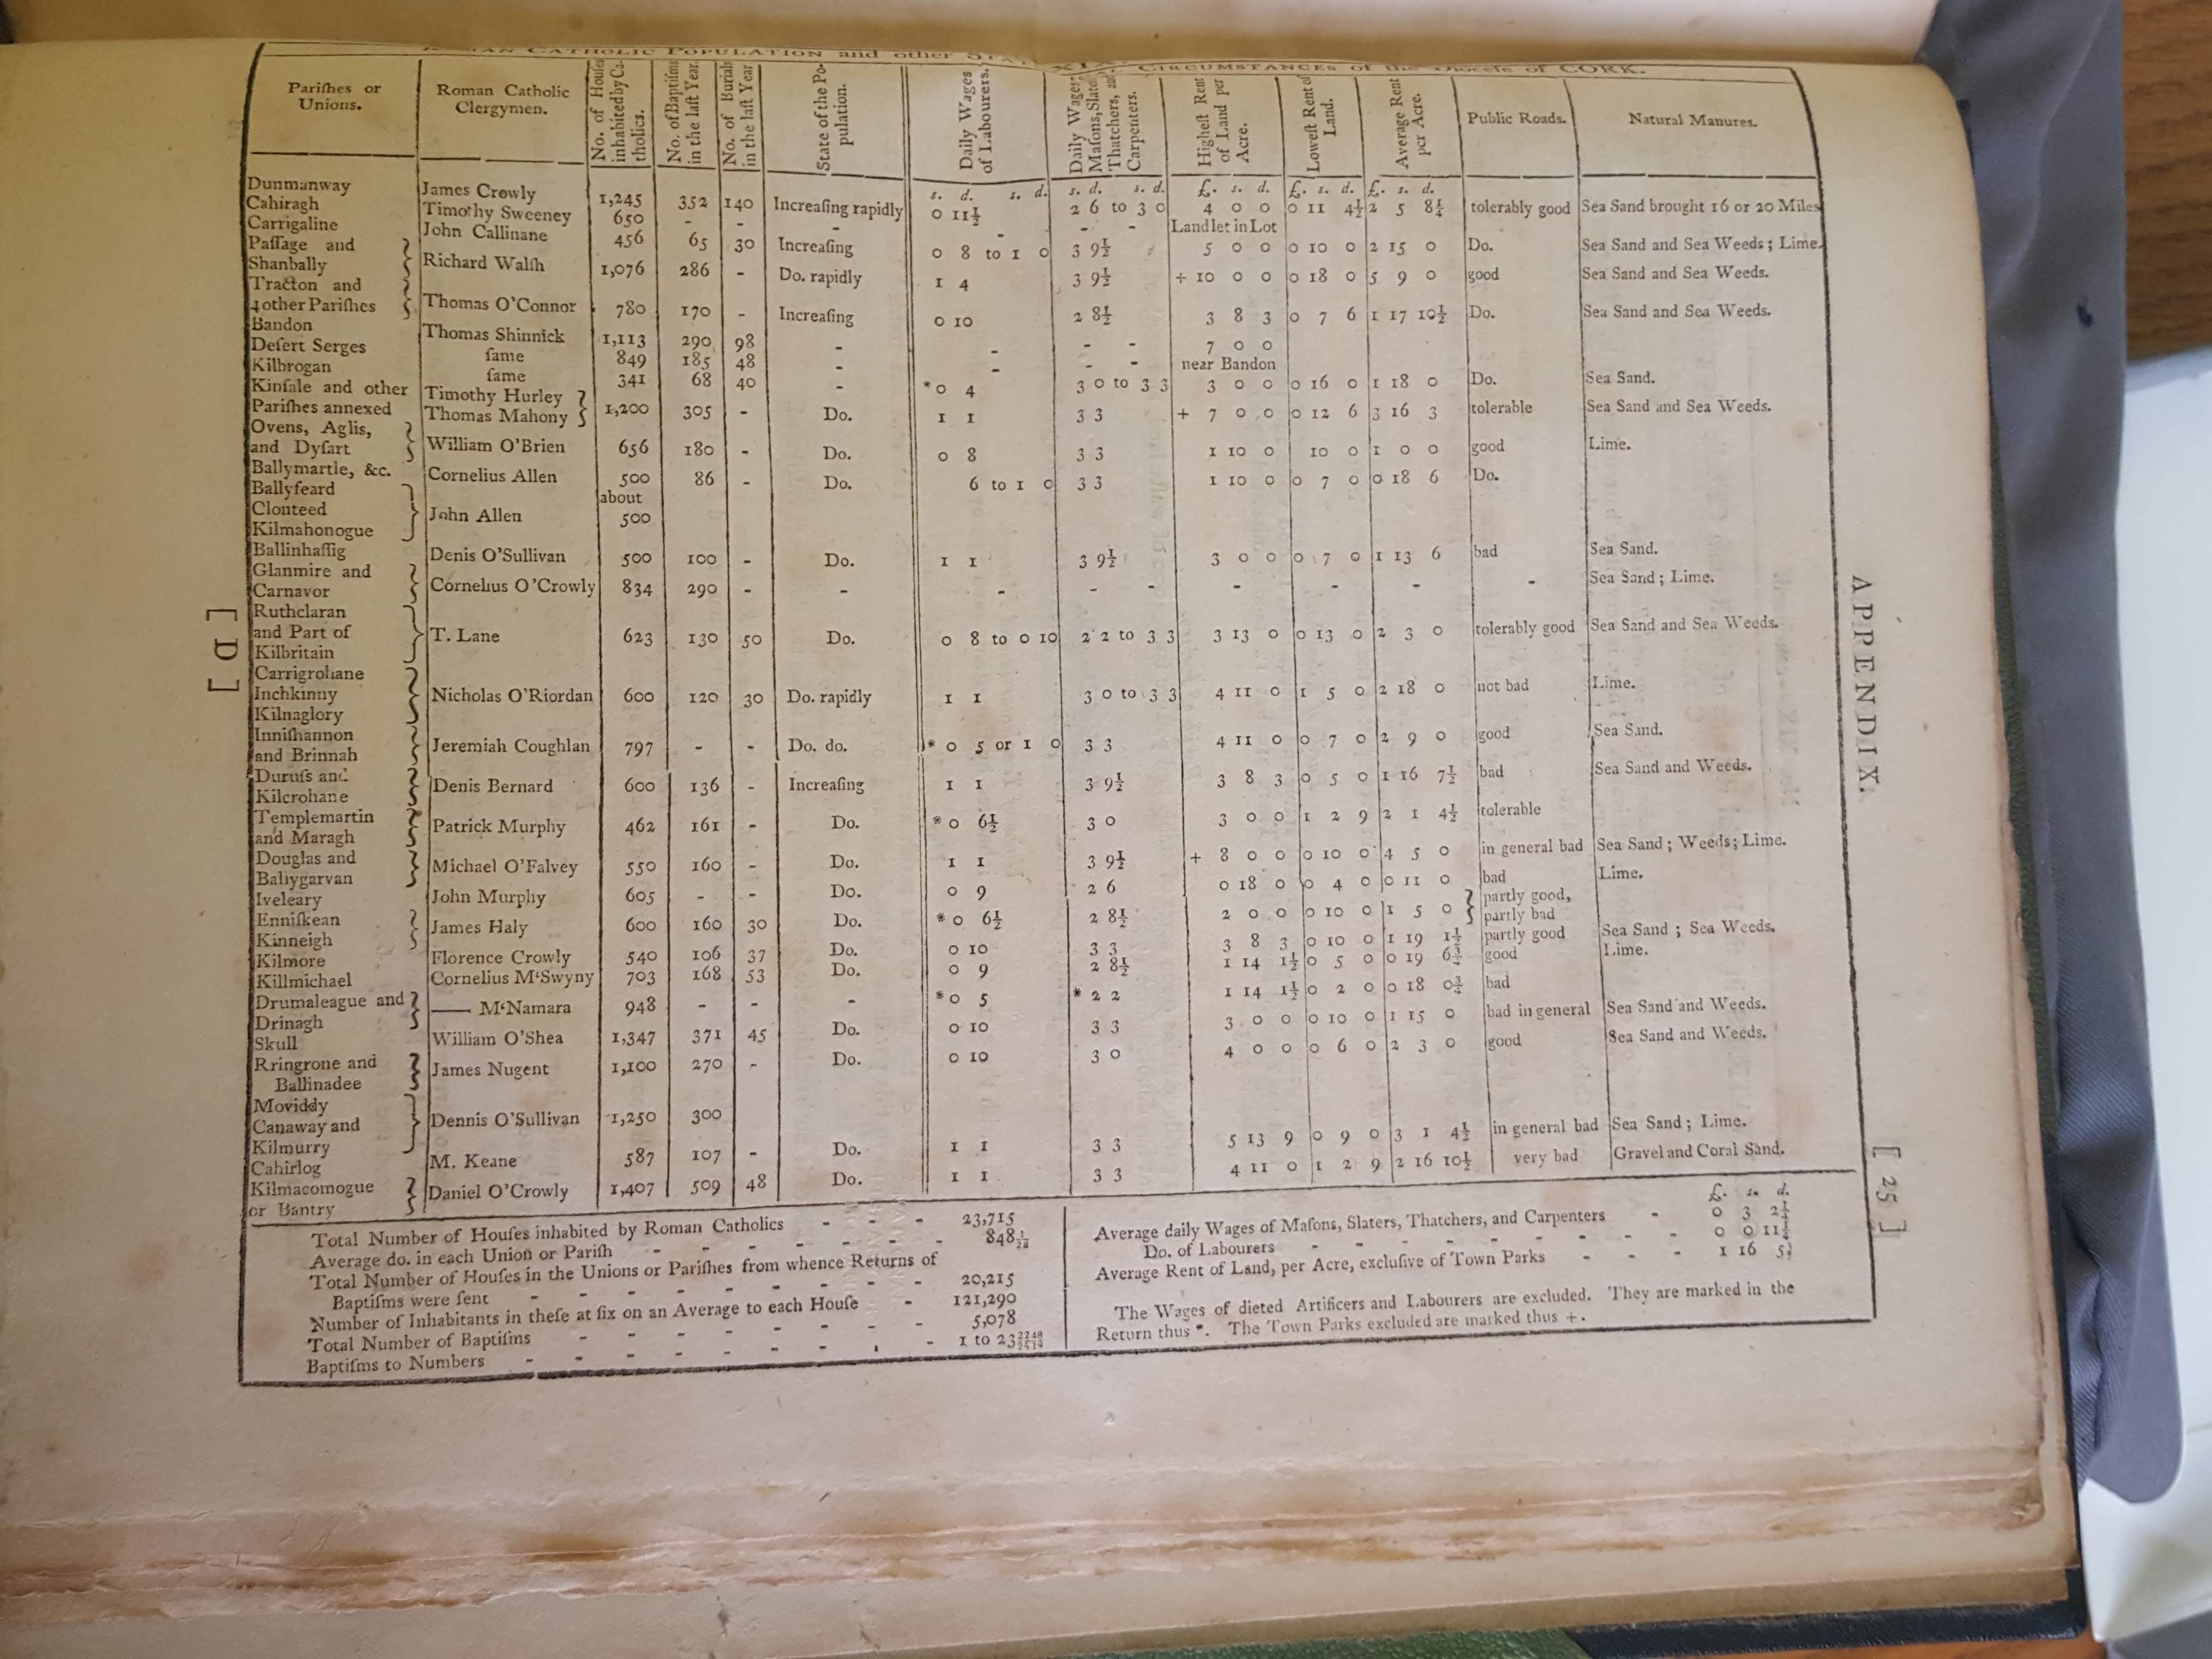 ROMAN CATHOLIC POPULATION and other CIRCUMSTANCES of the Diocese of CORK.
Pariſhes or Unions. | Roman Catholic Clergymen. | No. of Houſes inhabited by Catholics. | No. of Baptiſms in the laſt Year. | No. of Burials in the laſt Year | State of the Population. | Daily Wages of Labourers. | Daily Wages Maſons, Slaters Thatchers, and Carpenters. | Higheſt Rent of Land per Acre. | Loweſt Rent of Land. | Average Rent per Acre. | Public Roads. | Natural Manures.
s. d. s. d. | s. d. s. d. | £. s. d. | £. s. d. | £. s. d.
Dunmanway | James Crowly | 1,245 | 352 | 140 | Increaſing rapidly | 0 11½ | 2 6 to 3 0 | 4 0 0 | 0 11 4½ | 2 5 8¼ | tolerably good | Sea Sand brought 16 or 20 Miles
Cahiragh | Timothy Sweeney | 650 | - | - | - | - - | Land let in Lot
Carrigaline | John Callinane | 456 | 65 | 30 | Increaſing | 0 8 to 1 0 | 3 9½ | 5 0 0 | 0 10 0 | 2 15 0 | Do. | Sea Sand and Sea Weeds; Lime.
Paſſage and Shanbally | Richard Walſh | 1,076 | 286 | - | Do. rapidly | 1 4 | 3 9½ | + 10 0 0 | 0 18 0 | 5 9 0 | good | Sea Sand and Sea Weeds.
Tracton and 4 other Pariſhes | Thomas O'Connor | 780 | 170 | - | Increaſing | 0 10 | 2 8½ | 3 8 3 | 0 7 6 | 1 17 10½ | Do. | Sea Sand and Sea Weeds.
Bandon | Thomas Shinnick | 1,113 | 290 | 98 | - | - | - - | 7 0 0
Deſert Serges | ſame | 849 | 185 | 48 | - | - | - - | near Bandon
Kilbrogan | ſame | 341 | 68 | 40 | - | *0 4 | 3 0 to 3 3 | 3 0 0 | 0 16 0 | 1 18 0 | Do. | Sea Sand.
Kinſale and other Pariſhes annexed | Timothy Hurley Thomas Mahony | 1,200 | 305 | - | Do. | 1 1 | 3 3 | + 7 0 0 | 0 12 6 | 3 16 3 | tolerable | Sea Sand and Sea Weeds.
Ovens, Aglis, and Dyſart | William O'Brien | 656 | 180 | - | Do. | 0 8 | 3 3 | 1 10 0 | 10 0 | 1 0 0 | good | Lime.
Ballymartle, &c. | Cornelius Allen | 500 | 86 | - | Do. | 6 to 1 0 | 3 3 | 1 10 0 | 0 7 0 | 0 18 6 | Do.
Ballyfeard Clonteed Kilmahonogue | John Allen | about 500
Ballinhaſſig | Denis O'Sullivan | 500 | 100 | - | Do. | 1 1 | 3 9½ | 3 0 0 | 0 7 0 | 1 13 6 | bad | Sea Sand.
Glanmire and Carnavor | Cornelius O'Crowly | 834 | 290 | - | - | - | - - | - | - | - | - | Sea Sand; Lime.
Ruthclaran and Part of Kilbritain | T. Lane | 623 | 130 | 50 | Do. | 0 8 to 0 10 | 2 2 to 3 3 | 3 13 0 | 0 13 0 | 2 3 0 | tolerably good | Sea Sand and Sea Weeds.
Carrigrohane Inchkinny Kilnaglory | Nicholas O'Riordan | 600 | 120 | 30 | Do. rapidly | 1 1 | 3 0 to 3 3 | 4 11 0 | 1 5 0 | 2 18 0 | not bad | Lime.
Inniſhannon and Brinnah | Jeremiah Coughlan | 797 | - | - | Do. do. | * 0 5 or 1 0 | 3 3 | 4 11 0 | 0 7 0 | 2 9 0 | good | Sea Sand.
Duruſs and Kilcrohane | Denis Bernard | 600 | 136 | - | Increaſing | 1 1 | 3 9½ | 3 8 3 | 0 5 0 | 1 16 7½ | bad | Sea Sand and Weeds.
Templemartin and Maragh | Patrick Murphy | 462 | 161 | - | Do. | *0 6½ | 3 0 | 3 0 0 | 1 2 9 | 2 1 4½ | tolerable
Douglas and Ballygarvan | Michael O'Falvey | 550 | 160 | - | Do. | 1 1 | 3 9½ | + 8 0 0 | 0 10 0 | 4 5 0 | in general bad | Sea Sand; Weeds; Lime.
Iveleary | John Murphy | 605 | - | - | Do. | 0 9 | 2 6 | 0 18 0 | 0 4 0 | 0 11 0 | bad | Lime.
Enniſkean Kinneigh | James Haly | 600 | 160 | 30 | Do. | *0 6½ | 2 8½ | 2 0 0 | 0 10 0 | 1 5 0 | partly good, partly bad
Kilmore | Florence Crowly | 540 | 106 | 37 | Do. | 0 10 | 3 3 | 3 8 3 | 0 10 0 | 1 19 1½ | partly good | Sea Sand; Sea Weeds.
Killmichael | Cornelius M'Swyny | 703 | 168 | 53 | Do. | 0 9 | 2 8½ | 1 14 1½ | 0 5 0 | 0 19 6¾ | good | Lime.
Drumaleague and Drinagh | —— M'Namara | 948 | - | - | - | *0 5 | * 2 2 | 1 14 1½ | 0 2 0 | 0 18 0¾ | bad
Skull | William O'Shea | 1,347 | 371 | 45 | Do. | 0 10 | 3 3 | 3 0 0 | 0 10 0 | 1 15 0 | bad in general | Sea Sand and Weeds.
Rringrone and Ballinadee | James Nugent | 1,100 | 270 | - | Do. | 0 10 | 3 0 | 4 0 0 | 0 6 0 | 2 3 0 | good | Sea Sand and Weeds.
Moviddy Canaway and Kilmurry | Dennis O'Sullivan | 1,250 | 300
Cahirlog | M. Keane | 587 | 107 | - | Do. | 1 1 | 3 3 | 5 13 9 | 0 9 0 | 3 1 4½ | in general bad | Sea Sand; Lime.
Kilmacomogue or Bantry | Daniel O'Crowly | 1,407 | 509 | 48 | Do. | 1 1 | 3 3 | 4 11 0 | 1 2 9 | 2 16 10½ | very bad | Gravel and Coral Sand.
Total Number of Houſes inhabited by Roman Catholics - - - 23,715
Average do. in each Union or Pariſh - - - - - - 848
Total Number of Houſes in the Unions or Pariſhes from whence Returns of
Baptiſms were ſent - - - - - - - - 20,215
Number of Inhabitants in theſe at ſix on an Average to each Houſe - 121,290
Total Number of Baptiſms - - - - - - - 5,078
Baptiſms to Numbers - - - - - - - - 1 to 23
£. s. d.
Average daily Wages of Maſons, Slaters, Thatchers, and Carpenters - 0 3 2
Do. of Labourers - - - - - - - - 0 0 11
Average Rent of Land, per Acre, excluſive of Town Parks - - - 1 16 5
The Wages of dieted Artificers and Labourers are excluded. They are marked in the
Return thus *. The Town Parks excluded are marked thus +.
[ D ]
APPENDIX.
[ 25 ]